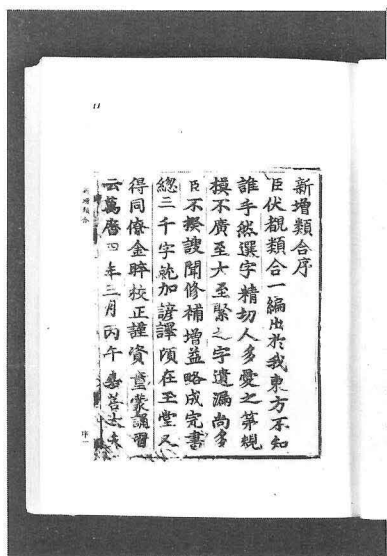 新增類合序
臣伏覩類合一編出於我東方不知
誰手然選字精切人多愛之第規
模不廣至大至繁之字遺漏尚多
臣不揆謏聞修補增益略成完書
總三千字就加諺譯頃在玉堂又
得同僚金晬校正謹資童蒙誦習
云萬曆四年三月丙午嘉善大夫
新增類合
序一
11